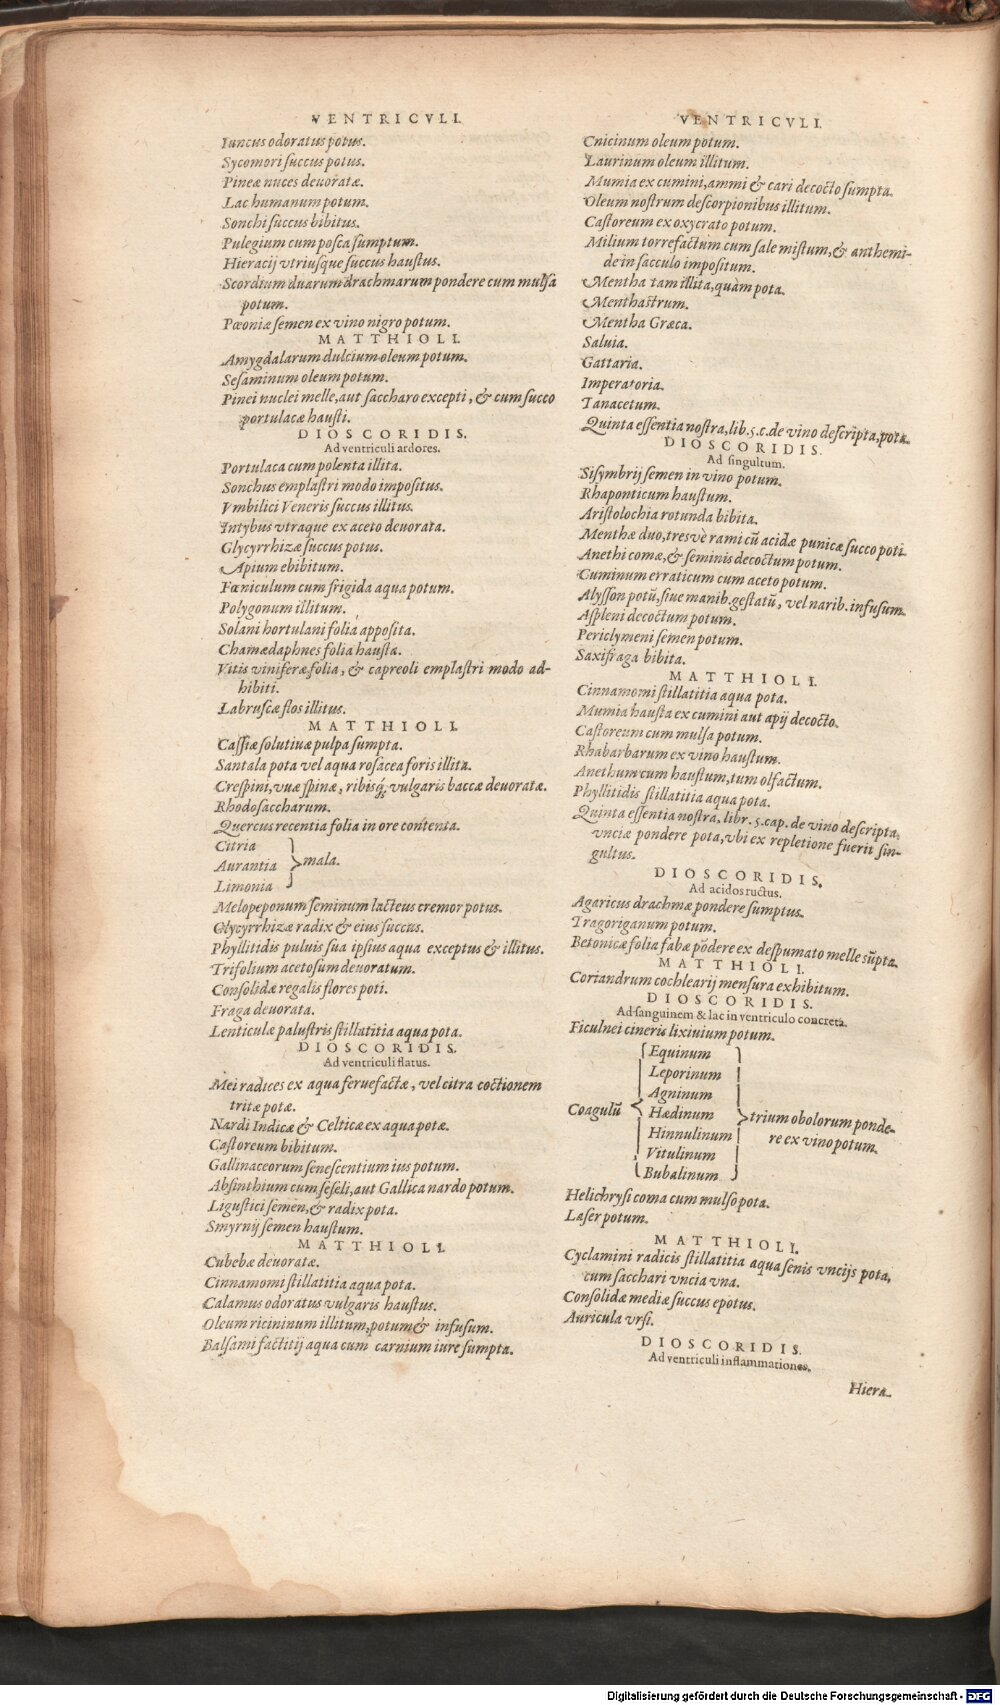 VENTRICVLI.
Iuncus odoratus potus.
Sycomori succus potus.
Pineæ nuces deuoratæ.
Lac humanum potum.
Sonchi succus bibitus.
Pulegium cum posca sumptum.
Hieracij vtriusque succus haustus.
Scordium duarum drachmarum pondere cum mulsa
potum.
Pæoniæ semen ex vino nigro potum.
MATTHIOLI.
Amygdalarum dulcium oleum potum.
Sesaminum oleum potum.
Pinei nuclei melle, aut saccharo excepti, & cum succo
portulacæ hausti.
DIOSCORIDIS.
Ad ventriculi ardores.
Portulaca cum polenta illita.
Sonchus emplastri modo impositus.
Vmbilici Veneris succus illitus.
Intybus vtraque ex aceto deuorata.
Glycyrrhizæ succus potus.
Apium ebibitum.
Fœniculum cum frigida aqua potum.
Polygonum illitum.
Solani hortulani folia apposita.
Chamædaphnes folia hausta.
Vitis viniferæ folia, & capreoli emplastri modo ad-
hibiti.
Labruscæ flos illitus.
MATTHIOLI.
Cassiæ solutiuæ pulpa sumpta.
Santala pota vel aqua rosacea foris illita.
Crespini, vuæ spinæ, ribisq́; vulgaris baccæ deuoratæ.
Rhodosaccharum.
Quercus recentia folia in ore contenta.
Citria
Aurantia } mala.
Limonia
Melopeponum seminum lacteus cremor potus.
Glycyrrhizæ radix & eius succus.
Phyllitidis puluis sua ipsius aqua exceptus & illitus.
Trifolium acetosum deuoratum.
Consolidæ regalis flores poti.
Fraga deuorata.
Lenticulæ palustris stillatitia aqua pota.
DIOSCORIDIS.
Ad ventriculi flatus.
Mei radices ex aqua feruefactæ, vel citra coctionem
tritæ potæ.
Nardi Indicæ & Celticæ ex aqua potæ.
Castoreum bibitum.
Gallinaceorum senescentium ius potum.
Absinthium cum seseli, aut Gallica nardo potum.
Ligustici semen, & radix pota.
Smyrnij semen haustum.
MATTHIOLI.
Cubebæ deuoratæ.
Cinnamomi stillatitia aqua pota.
Calamus odoratus vulgaris haustus.
Oleum ricininum illitum, potum & infusum.
Balsami factitij aqua cum carnium iure sumpta.
VENTRICVLI.
Cnicinum oleum potum.
Laurinum oleum illitum.
Mumia ex cumini, ammi & cari decocto sumpta.
Oleum nostrum de scorpionibus illitum.
Castoreum ex oxycrato potum.
Milium torrefactum cum sale mistum, & anthemi-
de in sacculo impositum.
Mentha tam illita, quàm pota.
Menthastrum.
Mentha Græca.
Saluia.
Gattaria.
Imperatoria.
Tanacetum.
Quinta essentia nostra, lib. 5. c. de vino descripta, pota.
DIOSCORIDIS.
Ad singultum.
Sisymbrij semen in vino potum.
Rhaponticum haustum.
Aristolochia rotunda bibita.
Menthæ duo, tresvè rami cũ acidæ punicæ succo poti.
Anethi comæ, & seminis decoctum potum.
Cuminum erraticum cum aceto potum.
Alysson potũ, siue manib. gestatũ, vel narib. infusum.
Aspleni decoctum potum.
Periclymeni semen potum.
Saxifraga bibita.
MATTHIOLI.
Cinnamomi stillatitia aqua pota.
Mumia hausta ex cumini aut apij decocto.
Castoreum cum mulsa potum.
Rhabarbarum ex vino haustum.
Anethum cum haustum, tum olfactum.
Phyllitidis stillatitia aqua pota.
Quinta essentia nostra, libr. 5. cap. de vino descripta,
vnciæ pondere pota, vbi ex repletione fuerit sin-
gultus.
DIOSCORIDIS.
Ad acidos ructus.
Agaricus drachmæ pondere sumptus.
Tragoriganum potum.
Betonicæ folia fabæ põdere ex despumato melle sũpta.
MATTHIOLI.
Coriandrum cochlearij mensura exhibitum.
DIOSCORIDIS.
Ad sanguinem & lac in ventriculo concreta.
Ficulnei cineris lixiuium potum.
Equinum
Leporinum
Agninum
Coagulũ { Hædinum } trium obolorum ponde-
Hinnulinum re ex vino potum.
Vitulinum
Bubalinum
Helichrysi coma cum mulso pota.
Laser potum.
MATTHIOLI.
Cyclamini radicis stillatitia aqua senis vncijs pota,
cum sacchari vncia vna.
Consolidæ mediæ succus epotus.
Auricula vrsi.
DIOSCORIDIS.
Ad ventriculi inflammationes.
Hiera
Digitalisierung gefördert durch die Deutsche Forschungsgemeinschaft - DFG